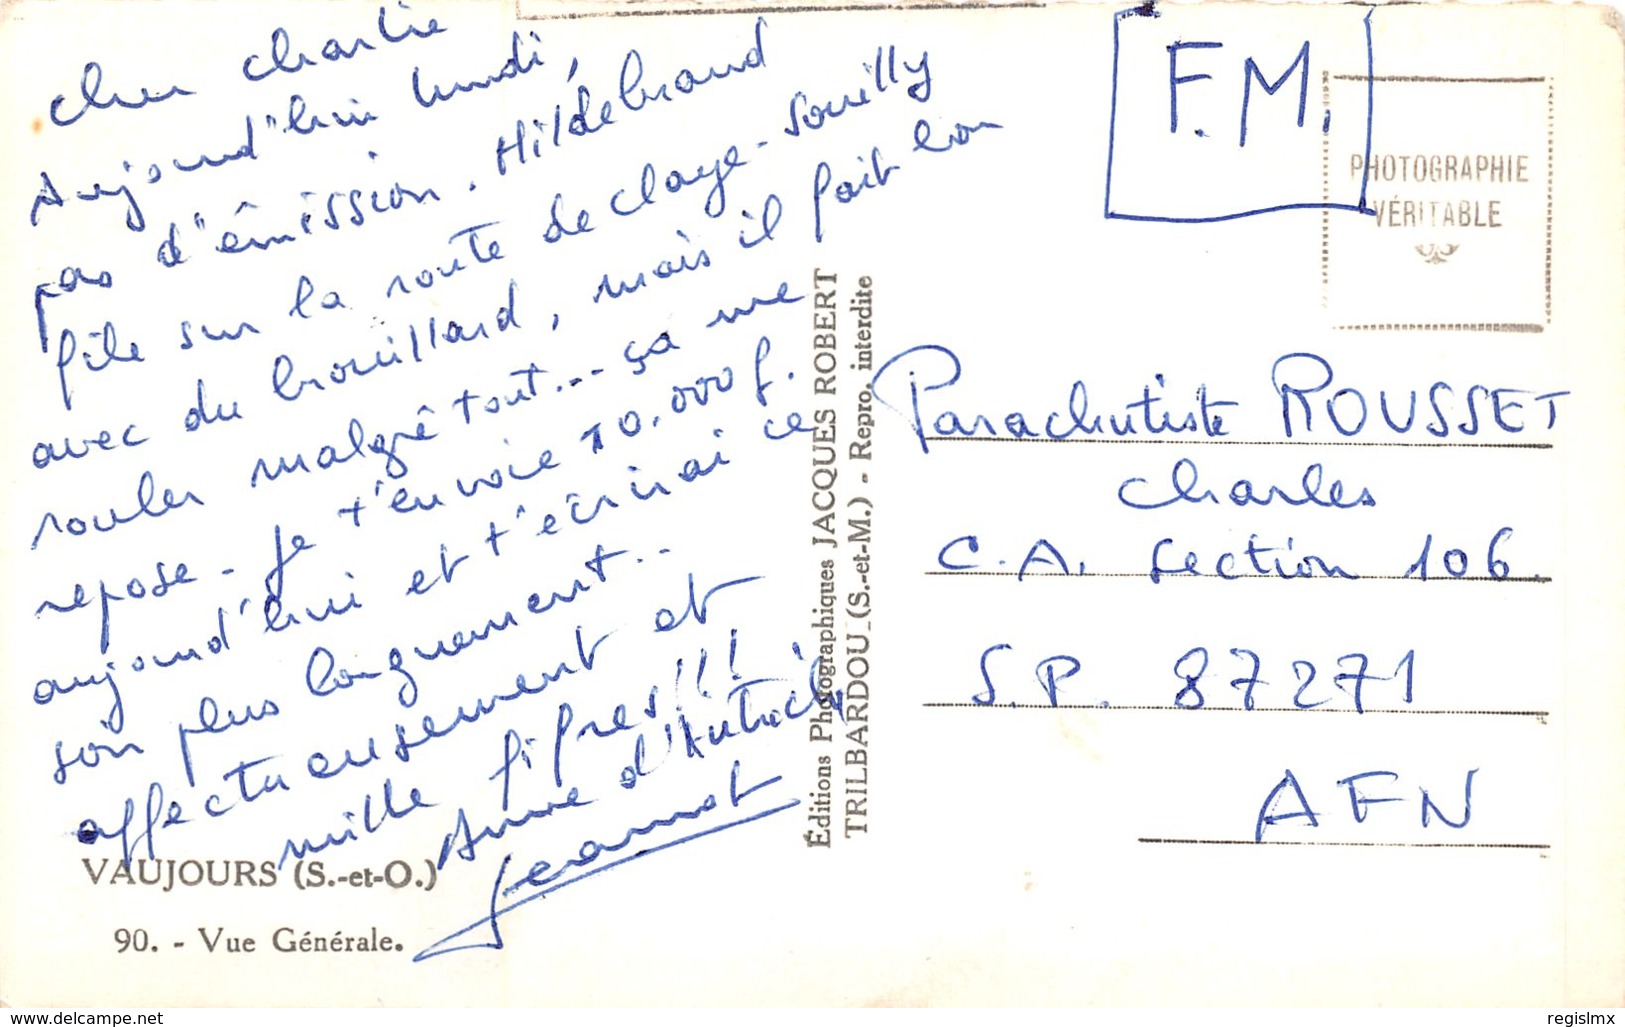 Cher Charlie
Aujourd'hui lundi,
pas d'émission. Hildebrand
file sur la route de Claye-Souilly
avec du brouillard, mais il fait bon
rouler malgré tout... ça me
repose - Je t'envoie 10.000 f.
aujourd'hui et t'écrirai ce
soir plus longuement...
affectueusement et
mille fifres!!!
Anne d'
Jeannot
VAUJOURS (S.-et-O.)
90. - Vue Générale.
Éditions Photographiques JACQUES ROBERT
TRILBARDOU (S.-et-M.) - Repro. interdite
F.M.
PHOTOGRAPHIE
VÉRITABLE
Parachutiste ROUSSET
Charles
C.A. Section 106.
S.P. 87271
AFN
www.delcampe.net
regislmx